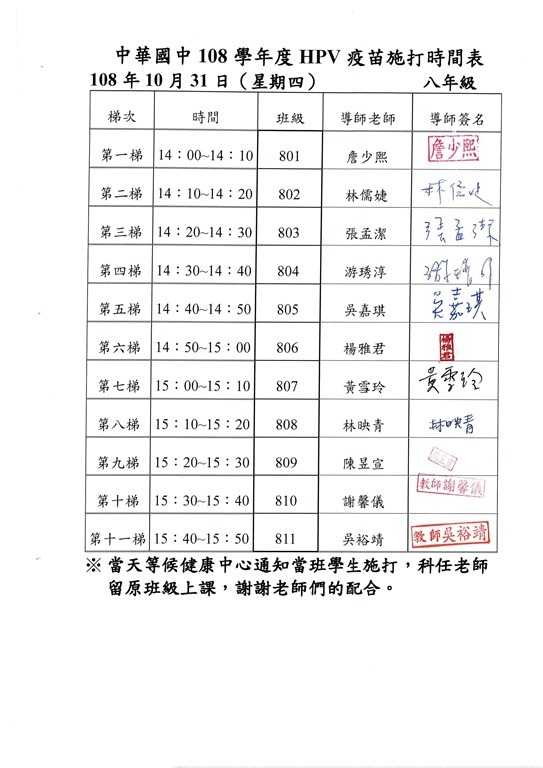 中華國中 108 學年度 HPV 疫苗施打時間表
108 年 10 月 31 日（星期四） 八年級
梯次 時間 班級 導師老師 導師簽名
第一梯 14：00~14：10 801 詹少熙 詹少熙
第二梯 14：10~14：20 802 林儒婕 林儒婕
第三梯 14：20~14：30 803 張孟潔 張孟潔
第四梯 14：30~14：40 804 游琇淳
第五梯 14：40~14：50 805 吳嘉琪 吳嘉琪
第六梯 14：50~15：00 806 楊雅君 楊雅君
第七梯 15：00~15：10 807 黃雪玲 黃雪玲
第八梯 15：10~15：20 808 林映青 林映青
第九梯 15：20~15：30 809 陳昱宣
第十梯 15：30~15：40 810 謝馨儀 教師謝馨儀
第十一梯 15：40~15：50 811 吳裕靖 教師吳裕靖
※ 當天等候健康中心通知當班學生施打，科任老師
留原班級上課，謝謝老師們的配合。